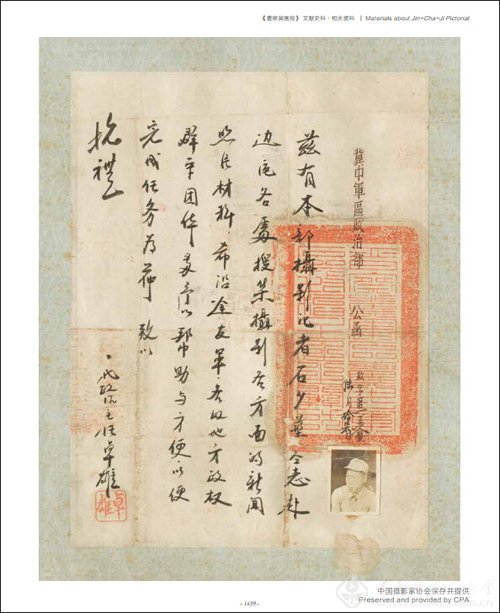 《晋察冀画报》 文献史料·相关资料 | Materials about Jin-Cha-Ji Pictorial
冀中軍區政治部 公函
兹有本部攝影记者石少華仝志赴
边區各處搜集攝影各方面的新闻
照片材料，希沿途友軍各级地方政权
群眾团体多予以帮助与方便，以便
完成任务为荷 致以
抗禮
代政治主任卓雄
卓雄
中国摄影家协会保存并提供
Preserved and provided by CPA
- 1439 -